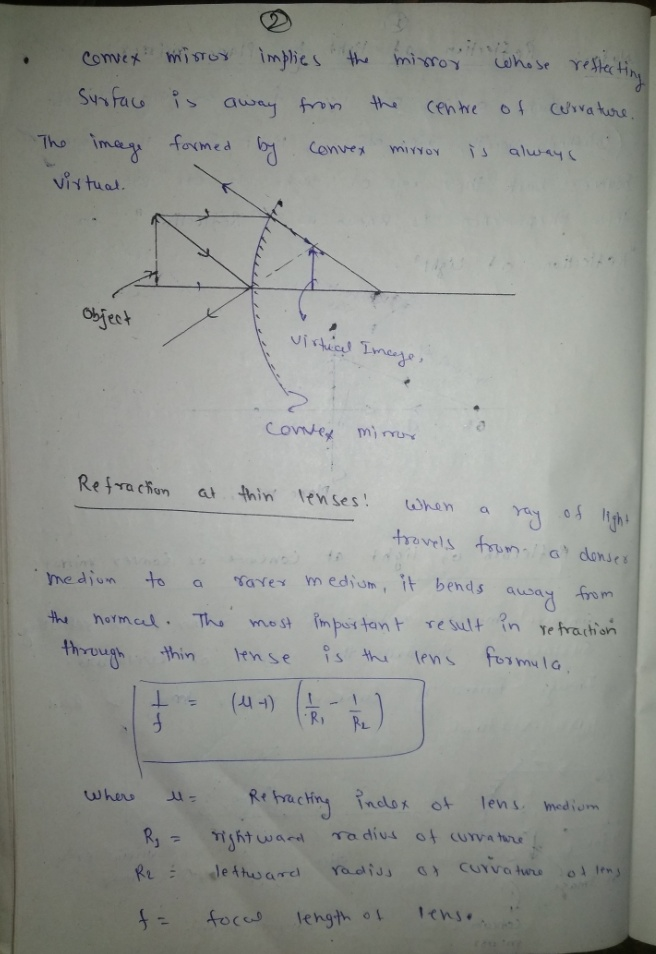 2
convex mirror implies the mirror whose reflecting
Surface is away from the centre of curvature.
The image formed by convex mirror is always
virtual.
Object
virtual Image,
convex mirror
Refraction at thin lenses: when a ray of light
travels from a denser
medium to a rarer medium, it bends away from
the normal. The most important result in refraction
through thin lense is the lens formula.
1/f = (μ-1) (1/R1 - 1/R2)
where μ = Refracting index of lens medium
R1 = rightward radius of curvature
R2 = leftward radius of curvature of lens
f = focal length of lens.